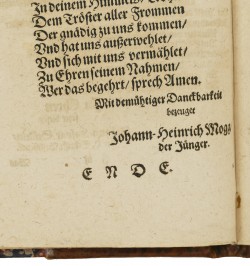 In deinem Himmels,
Dem Tröster aller Frommen
Der gnädig zu uns kommen/
Und hat uns außerwehlet/
Und sich mit uns vermählet/
Zu Ehren seinem Nahmen/
Wer das begehrt/ sprech Amen.
Mit demühtiger Danckbarkeit
bezeuget
Johann-Heinrich Mogg
der Jünger.
E N D E.